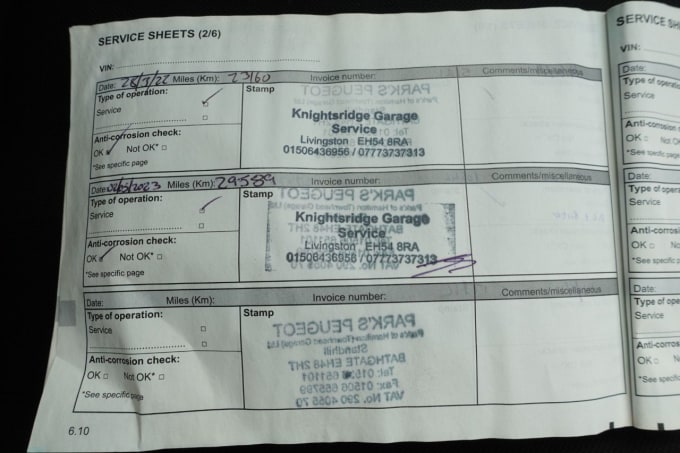 SERVICE SHEETS (2/6)
VIN:
Date: 28/3/22 Miles (Km): 23160 Invoice number: Comments/miscellaneous
Type of operation: Stamp
Service
Knightsridge Garage
Service
Livingston EH54 8RA
01506436956 / 07773737313
Anti-corrosion check:
OK Not OK*
*See specific page
Date: 02/5/2023 Miles (Km): 29589 Invoice number: Comments/miscellaneous
Type of operation: Stamp
Service
Knightsridge Garage
Service
Livingston EH54 8RA
01506436956 / 07773737313
Anti-corrosion check:
OK Not OK*
*See specific page
Date: Miles (Km): Invoice number: Comments/miscellaneous
Type of operation: Stamp
Service
PARK'S PEUGEOT
Park's of Hamilton (Townhead Garage) Ltd
BATHGATE EH48 2HT
VAT No. 290 4058 70
Anti-corrosion check:
OK Not OK*
*See specific page
6.10
SERVICE SH
VIN:
Date:
Type of operatio
Service
Anti-corrosion
OK
*See specific page
Date:
Type of opera
Service
Anti-corrosi
OK No
*See specific p
Date:
Type of ope
Service
Anti-corros
OK N
*See specifi